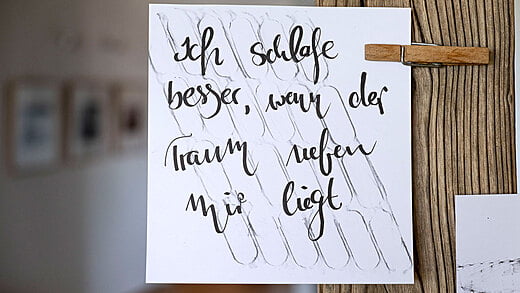 Ich schlafe
besser, wenn der
Traum neben
mir liegt